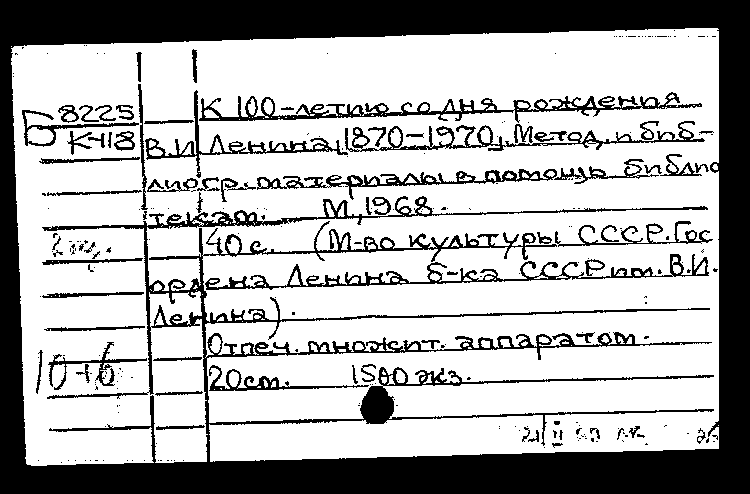 Б 8225
К-418
К 100-летию со дня рождения
В.И. Ленина, [1870-1970]. Метод. и биб-
лиогр. материалы в помощь библио
текам. М., 1968.
2 экз.
40 с. (М-во культуры СССР. Гос
ордена Ленина б-ка СССР им. В.И.
Ленина).
Отпеч. множит. аппаратом.
10-16
20 см. 1500 экз.
21/II